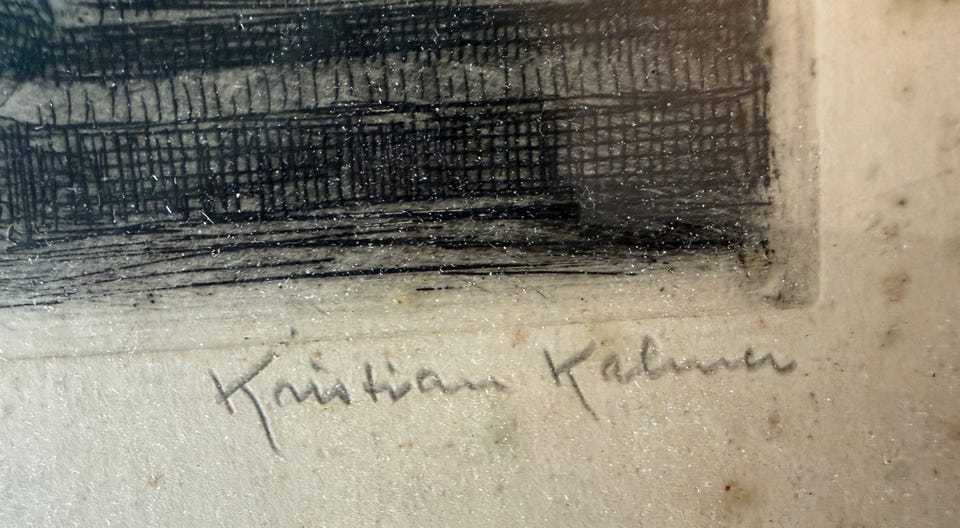 Kristian Kalmer